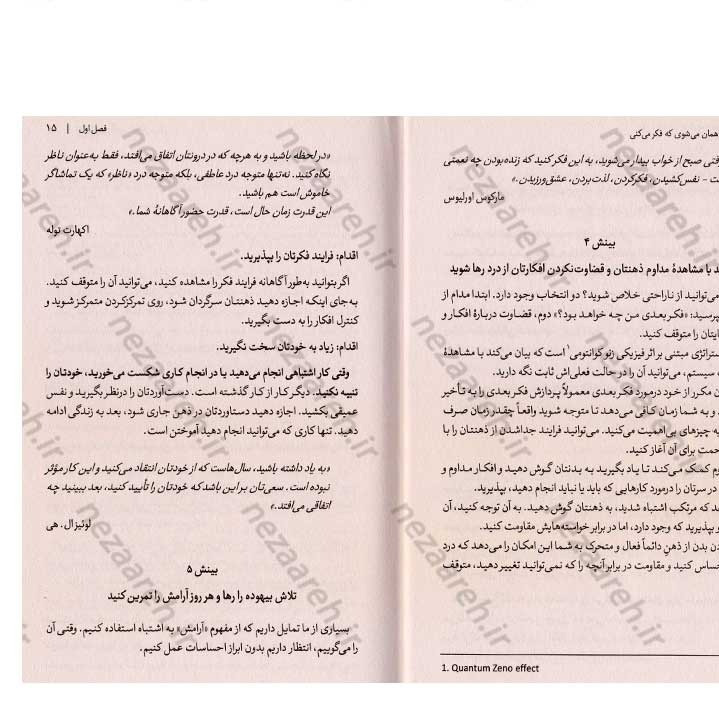 همان می‌شوی که فکر می‌کنی
قتی صبح از خواب بیدار می‌شوید، به این فکر کنید که زنده‌بودن چه نعمتی
ت - نفس‌کشیدن، فکرکردن، لذت‌بردن، عشق‌ورزیدن.»
مارکوس اورلیوس
بینش ۴
د با مشاهدهٔ مداوم ذهنتان و قضاوت‌نکردن افکارتان از درد رها شوید
می‌توانید از ناراحتی خلاص شوید؟ دو انتخاب وجود دارد. ابتدا مدام از
پرسید: «فکر بعدی من چه خواهد بود؟» دوم، قضاوت دربارهٔ افکار و
ایتان را متوقف کنید.
ستراتژی مبتنی بر اثر فیزیکی زنو کوانتومی۱ است که بیان می‌کند با مشاهدهٔ
ه سیستم، می‌توانید آن را در حالت فعلی‌اش ثابت نگه دارید.
ن مکرر از خود درمورد فکر بعدی معمولاً پردازش فکر بعدی را به تأخیر
د و به شما زمان کافی می‌دهد تا متوجه شوید واقعاً چقدر زمان صرف
به چیزهای بی‌اهمیت می‌کنید. می‌توانید فرایند جداشدن از ذهنتان را با
حمت برای آن آغاز کنید.
وم کمک می‌کند تا یاد بگیرید به بدنتان گوش دهید و افکار مداوم و
در سرتان را درمورد کارهایی که باید یا نباید انجام دهید، بپذیرید.
د که مرتکب اشتباه شدید، به ذهنتان گوش دهید. به آن توجه کنید، آن
و بپذیرید که وجود دارد، اما در برابر خواسته‌هایش مقاومت کنید.
دن بدن از ذهنِ دائماً فعال و متحرک به شما این امکان را می‌دهد که درد
حساس کنید و مقاومت در برابر آنچه را که نمی‌توانید تغییر دهید، متوقف
1. Quantum Zeno effect
فصل اول | ۱۵
«در لحظه باشید و به هرچه که در درونتان اتفاق می‌افتد، فقط به‌عنوان ناظر
نگاه کنید. نه‌تنها متوجه درد عاطفی، بلکه متوجه درد «ناظر» که یک تماشاگر
خاموش است هم باشید.
این قدرت زمان حال است، قدرت حضور آگاهانهٔ شما.»
اکهارت توله
اقدام: فرایند فکرتان را بپذیرید.
اگر بتوانید به‌طور آگاهانه فرایند فکر را مشاهده کنید، می‌توانید آن را متوقف کنید.
به‌جای اینکه اجازه دهید ذهنتان سرگردان شود، روی تمرکزکردن متمرکز شوید و
کنترل افکار را به دست بگیرید.
اقدام: زیاد به خودتان سخت نگیرید.
وقتی کار اشتباهی انجام می‌دهید یا در انجام کاری شکست می‌خورید، خودتان را
تنبیه نکنید. دیگر کار از کار گذشته است. دستاوردتان را درنظر بگیرید و نفس
عمیقی بکشید. اجازه دهید دستاوردتان در ذهن جاری شود، بعد به زندگی ادامه
دهید. تنها کاری که می‌توانید انجام دهید آموختن است.
«به یاد داشته باشید، سال‌هاست که از خودتان انتقاد می‌کنید و این کار مؤثر
نبوده است. سعی‌تان بر این باشد که خودتان را تأیید کنید، بعد ببینید چه
اتفاقی می‌افتد.»
لوئیز ال. هی
بینش ۵
تلاش بیهوده را رها و هر روز آرامش را تمرین کنید
بسیاری از ما تمایل داریم که از مفهوم «آرامش» به اشتباه استفاده کنیم. وقتی آن
را می‌گوییم، انتظار داریم بدون ابراز احساسات عمل کنیم.
nezaareh.ir